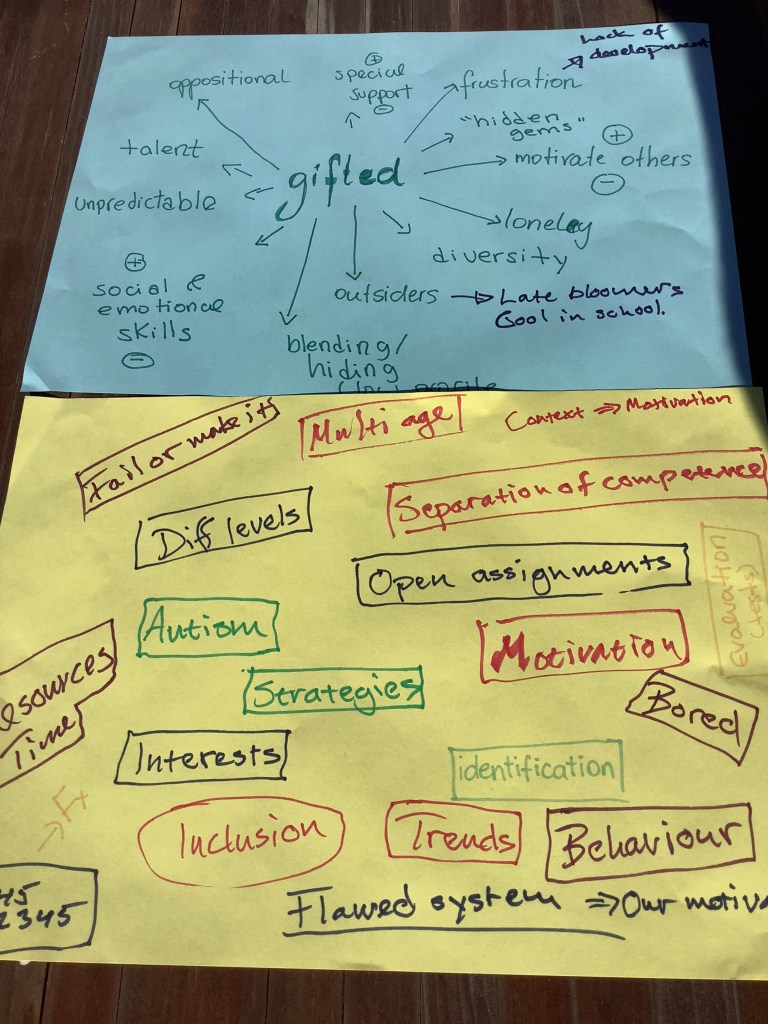 Lack of
development
oppositional
special
support
frustration
"hidden
gems"
talent
motivate others
gifted
unpredictable
loneley
diversity
social &
emotional
skills
outsiders → Late bloomers
Cool in school.
blending/
hiding
Tailor make it
Multi age
Context ⇒ Motivation
Separation of competence
Dif levels
Open assignments
Evaluation
(tests)
Autism
Motivation
Strategies
esources
Time
Bored
Interests
identification
Inclusion
Trends
Behaviour
45
2345
Flawed system ⇒ Our motiva